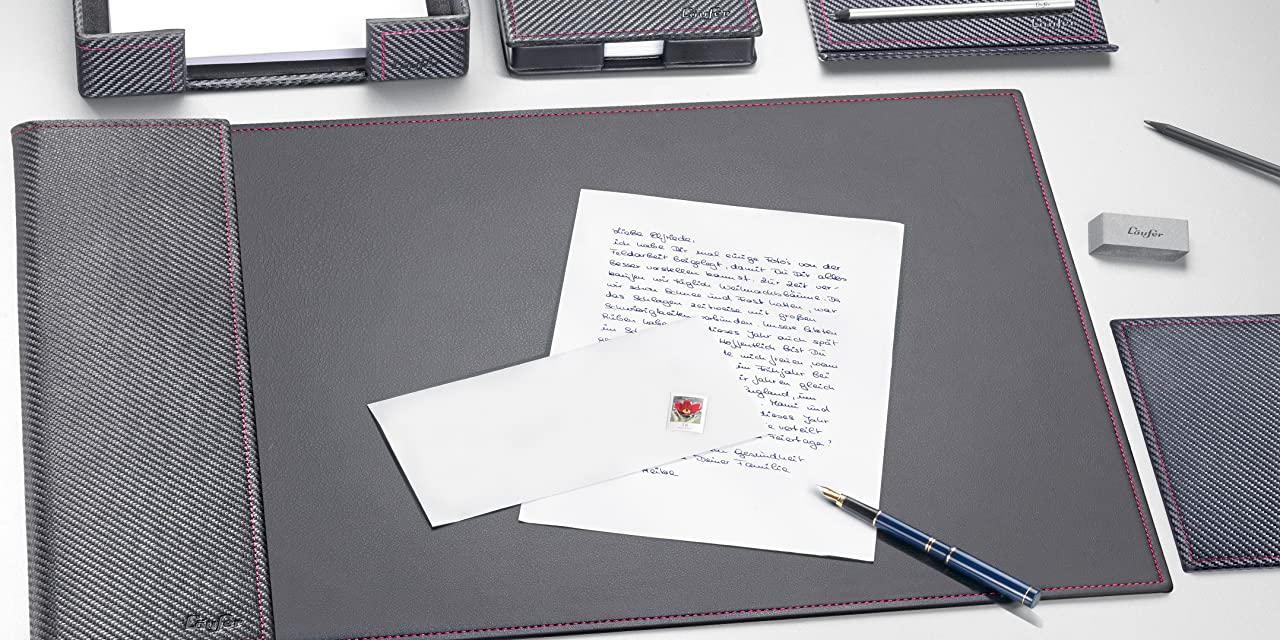 Läufer
Läufer
Liebe Elfriede,
ich habe Dir mal einige Foto's von der
Feldarbeit beigelegt, damit Du Dir alles
besser vorstellen kannst. Zur Zeit ver-
kaufen wir täglich Weihnachtsbäume. Da
wir schon Schnee und Frost hatten, war
das Schlagen zeitweise mit großen
Schwierigkeiten verbunden. Unsere letzten
Rüben habe dieses Jahr auch spät
im
Hoffentlich bist Du
mich freuen wenn
im Frühjahr bei
Jahren gleich
England, im
Mami und
dieses Jahr
verteilt
Feiertage?
Gesundheit
Deiner Familie
Heike
Läufer
Läufer